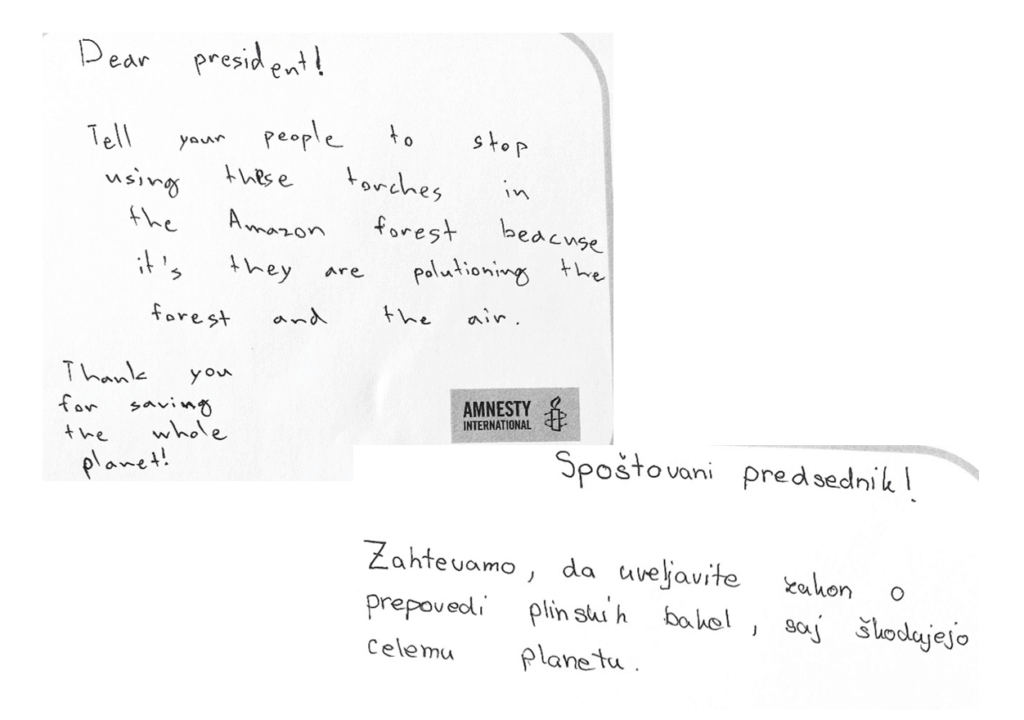 Dear president!
Tell your people to stop
using these torches in
the Amazon forest beacuse
it's they are polutioning the
forest and the air.
Thank you
for saving
the whole
planet!
AMNESTY
INTERNATIONAL
Spoštovani predsednik!
Zahtevamo, da uveljavite zakon o
prepovedi plinskih bakel, saj škodujejo
celemu planetu.